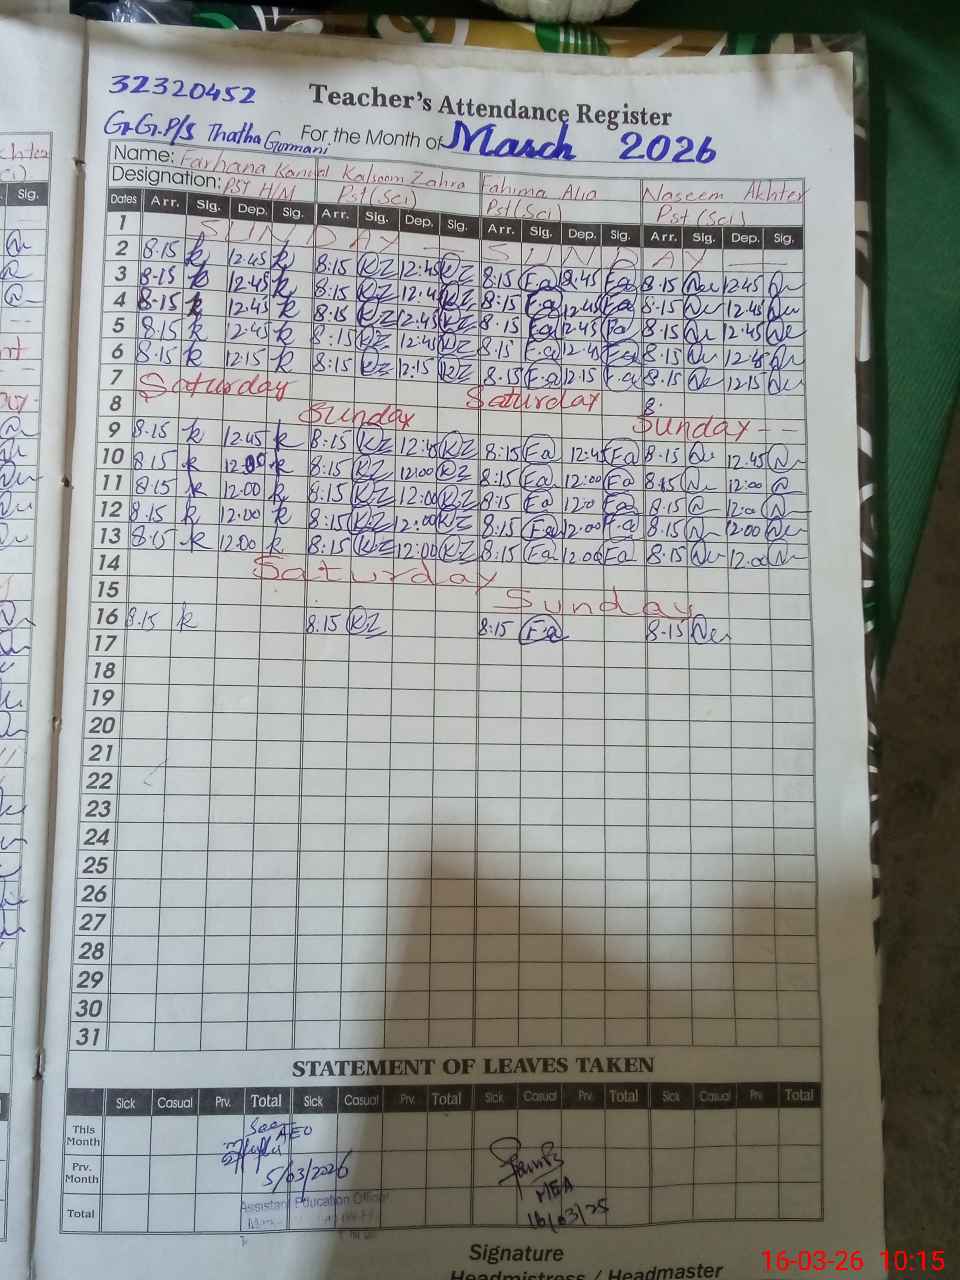 32320452
Teacher's Attendance Register
G.G.P/S Thatha Gurmani For the Month of March 2026
Name: Farhana Kanwal Kalsoom Zahra Fahima Alia Naseem Akhter
Designation: PST H/M Pst(Sci) Pst(Sci) Pst(Sci)
Dates Arr. Sig. Dep. Sig. Arr. Sig. Dep. Sig. Arr. Sig. Dep. Sig. Arr. Sig. Dep. Sig.
1 SUNDAY -- SUNDAY --
2 8.15 k 12.45 k 8:15 KZ 12:45 KZ 8:15 Fa 12.45 Fa 8.15 12.45
3 8.15 k 12.45 k 8:15 KZ 12:45 KZ 8:15 Fa 12.45 Fa 8.15 12.45
4 8.15 k 12.45 k 8:15 KZ 12:45 KZ 8:15 Fa 12.45 Fa 8.15 12.45
5 8.15 k 12.45 k 8:15 KZ 12:45 KZ 8:15 Fa 12.45 Fa 8.15 12.45
6 8.15 k 12.15 k 8:15 KZ 12.15 KZ 8.15 Fa 12.15 Fa 8.15 12.15
7 Saturday Saturday 8.
8 Sunday Sunday --
9 8.15 k 12.45 k 8:15 KZ 12:45 KZ 8:15 Fa 12:45 Fa 8.15 12.45
10 8.15 k 12.00 k 8:15 KZ 12:00 KZ 8:15 Fa 12:00 Fa 8.15 12:00
11 8.15 k 12.00 k 8:15 KZ 12:00 KZ 8:15 Fa 12:00 Fa 8.15 12:00
12 8.15 k 12.00 k 8:15 KZ 12:00 KZ 8:15 Fa 12:00 Fa 8.15 12.00
13 8.15 k 12.00 k 8:15 KZ 12:00 KZ 8:15 Fa 12.00 Fa 8.15 12.00
14 Saturday
15 Sunday
16 8.15 k 8.15 KZ 8:15 Fa 8.15
17
18
19
20
21
22
23
24
25
26
27
28
29
30
31
STATEMENT OF LEAVES TAKEN
Sick Casual Prv. Total Sick Casual Prv. Total Sick Casual Prv. Total Sick Casual Prv. Total
This Month
Prv. Month
Total
AEO
5/03/2026
Assistant Education Officer
MEA
16/03/25
Signature
Headmistress / Headmaster
16-03-26 10:15